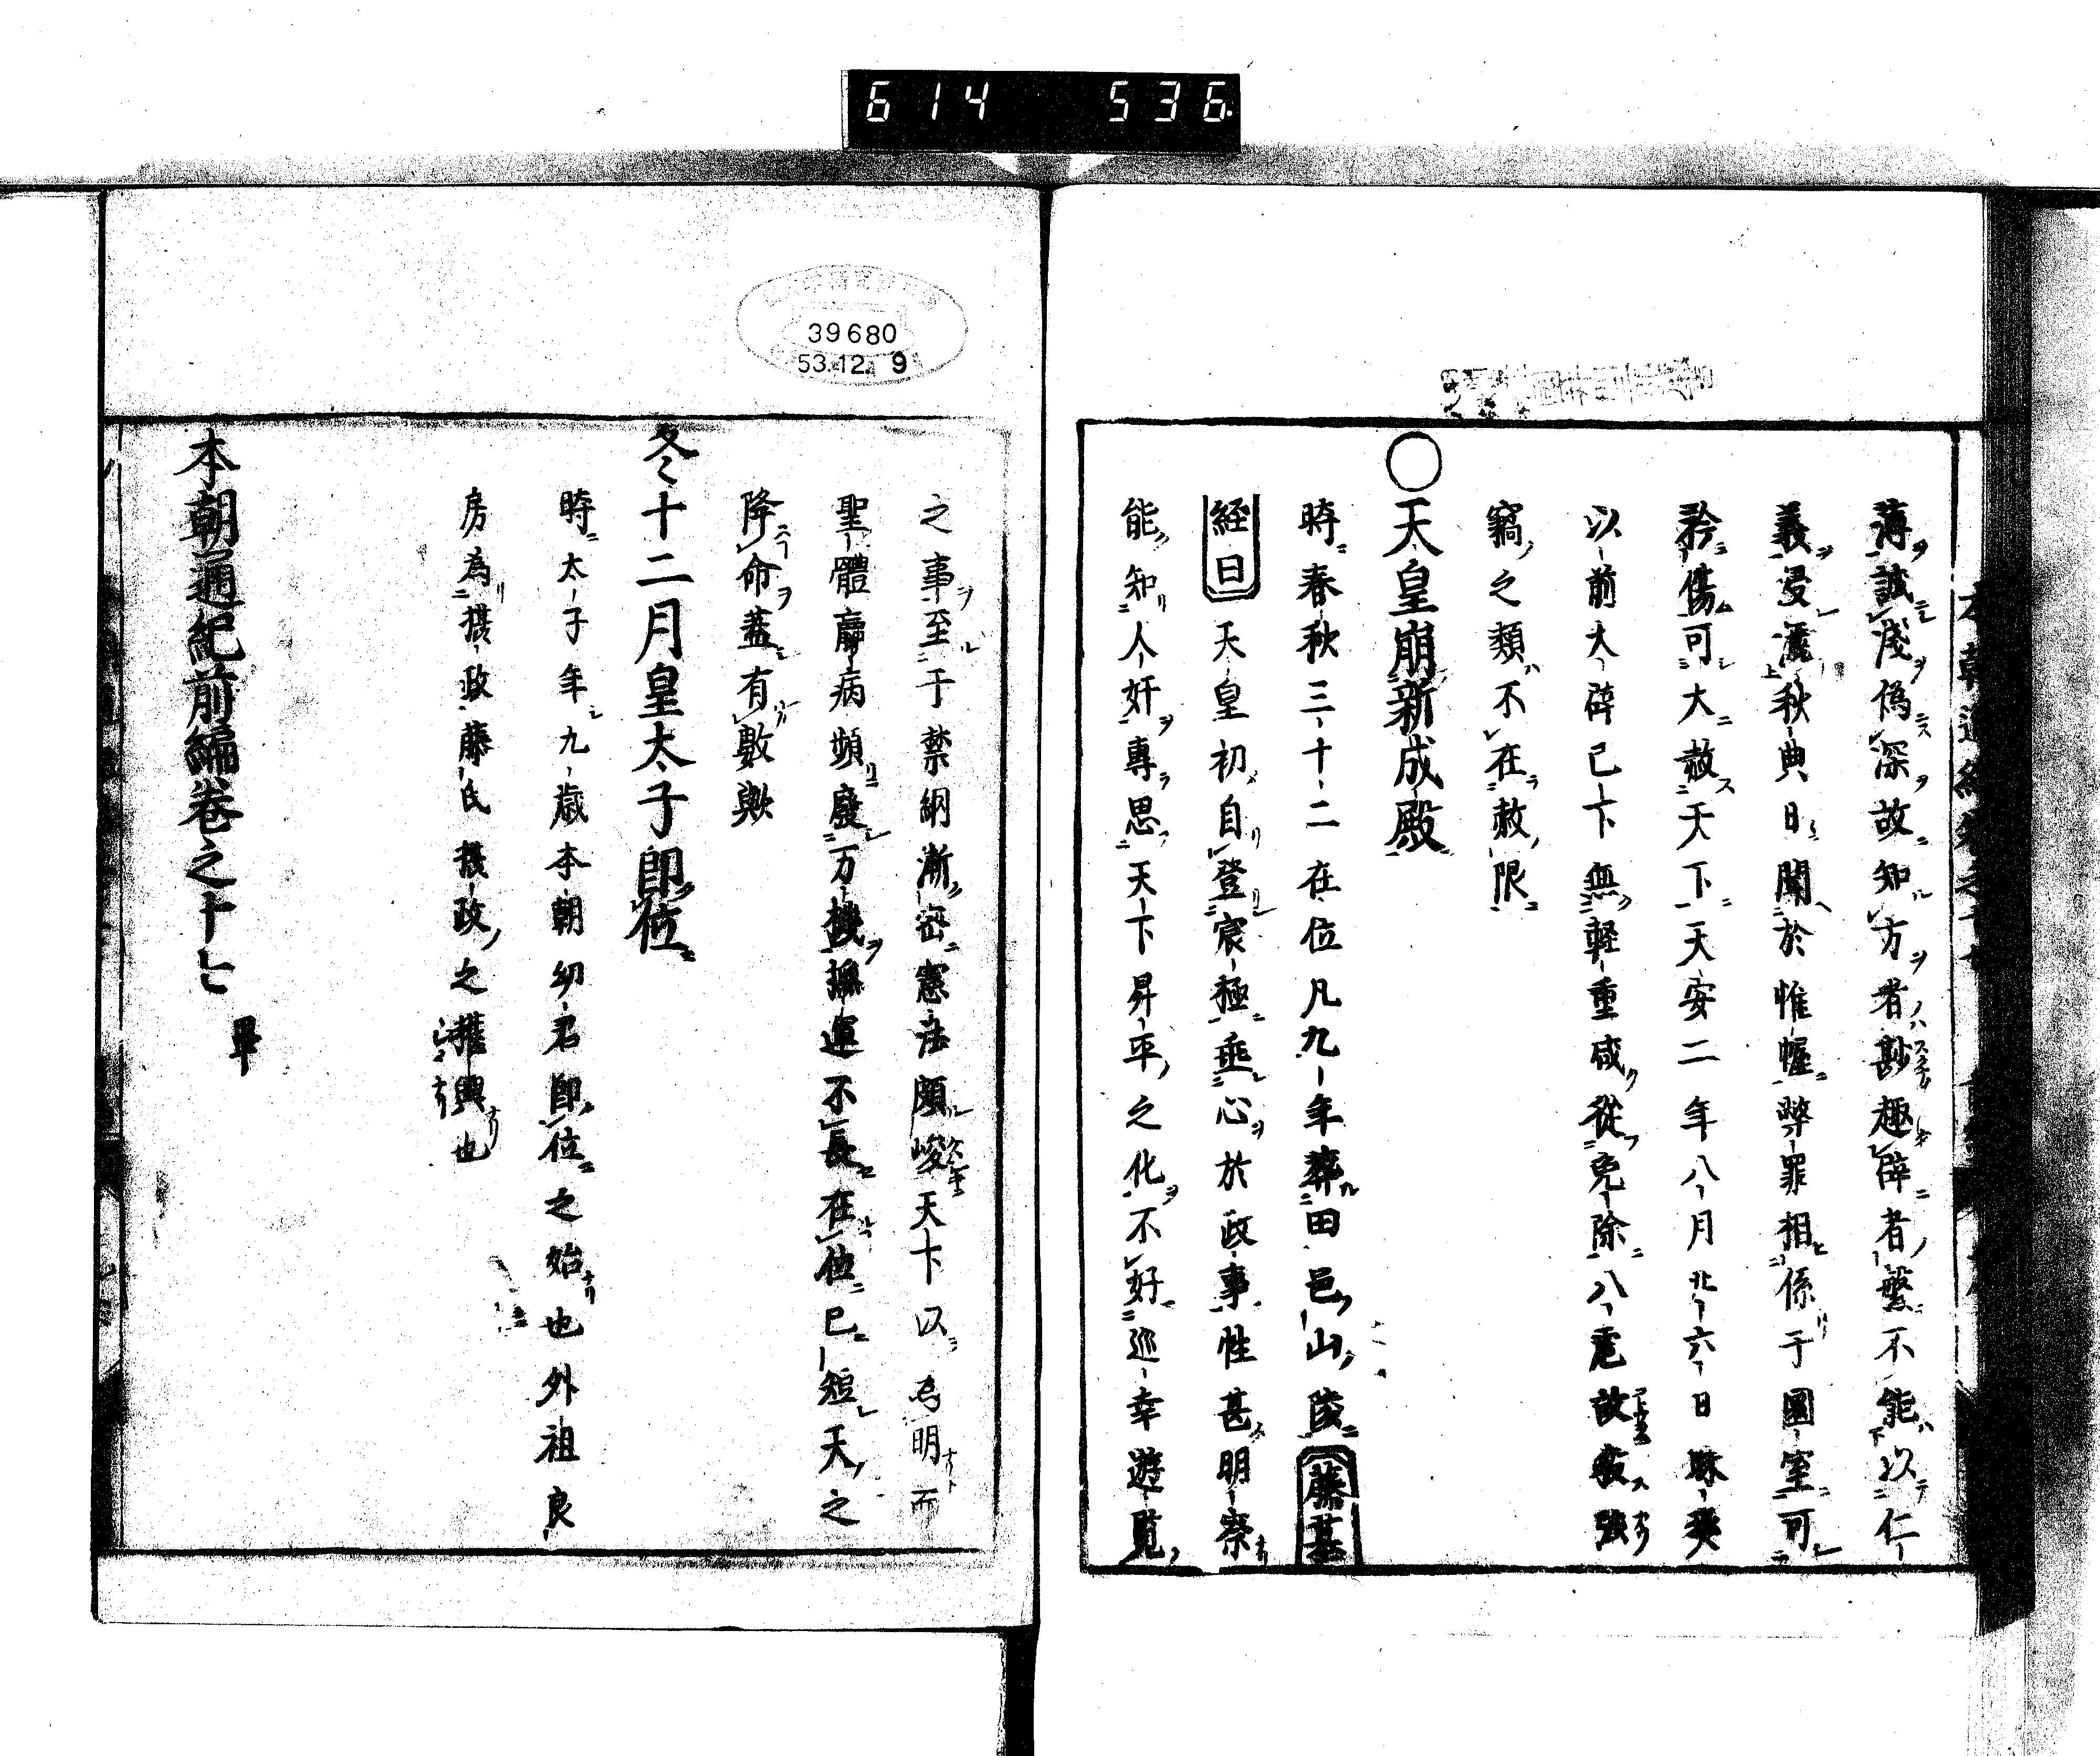 614 536
薄誠淺偽深故知方者尠趣辟者繁不能以仁
義浸灑秋典日聞於惟幄弊罪相係于圄室可
矜傷可大赦天下天安二年八月廿六日昧爽
以前大辟已下無輕重咸從免除八虐故殺強
竊之類不在赦限
○天皇崩新成殿
時春秋三十二在位凡九年葬田邑山陵藤基
経曰天皇初自登宸極垂心於政事性甚明察
能知人奸專思天下昇平之化不好巡幸遊覧
39680
53.12. 9
之事至于禁網漸密憲法頗峻天下以為明而
聖體羸病頻廢万機撫運不長在位已短天之
降命蓋有數歟
冬十二月皇太子即位
時太子年九歳本朝幼君即位之始也外祖良
房為攝政藤氏攝政之權輿也
本朝通紀前編巻之十七 畢